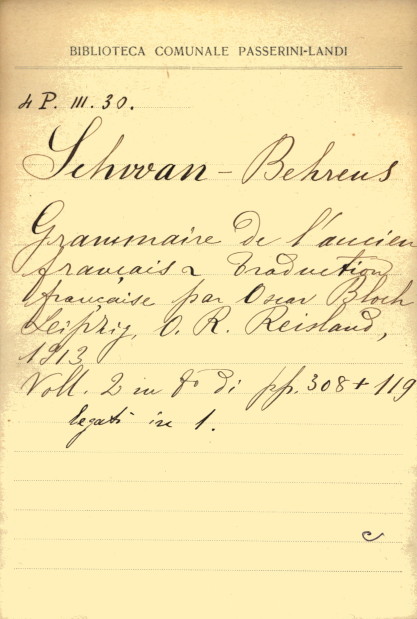 BIBLIOTECA COMUNALE PASSERINI-LANDI
4 P. III. 30.
Schwan - Behrens
Grammaire de l'ancien
français traduction
française par Oscar Bloch
Leipzig, O. R. Reisland,
1913
Voll. 2 in 8° di pp. 308 + 119
legati in 1.